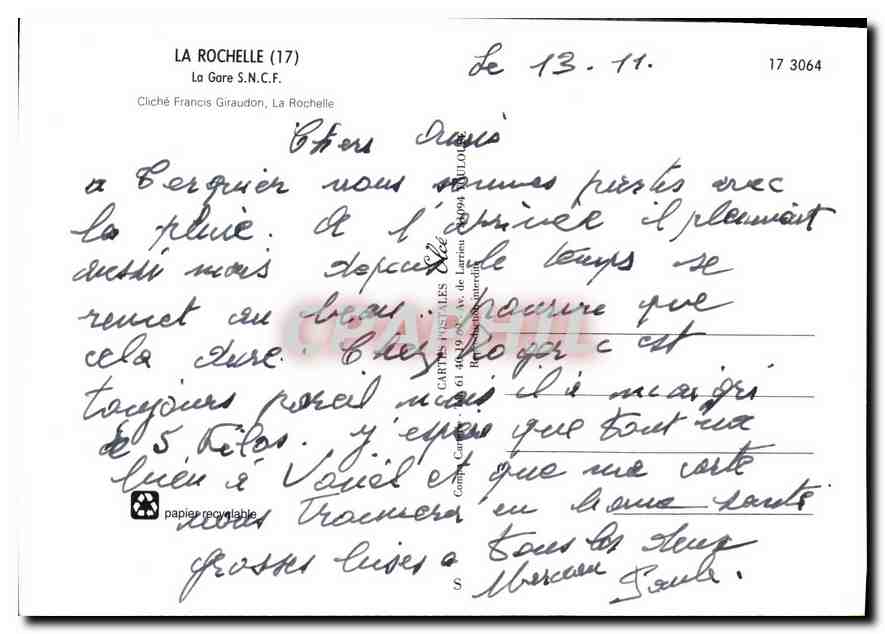 LA ROCHELLE (17)
La Gare S.N.C.F.
Cliché Francis Giraudon, La Rochelle
17 3064
Le 13.11.
Chers Amis
a Tergnier nous sommes partis avec
la pluie. A l'arrivée il pleuvait
aussi mais depuis le temps se
remet au beau. pourvu que
cela dure. Chez Roger c est
toujours pareil mais il à maigri
de 5 Kilos. j'espère que tout va
bien à Vouël et que ma carte
vous trouvera en bonne santé
grosses bises a tous les deux
Paule.
papier recyclable
CARTES POSTALES Elcé
61 40 19 62 Av. de Larrieu 31094 TOULOUSE
Reproduction interdite
S
CPAPHIL